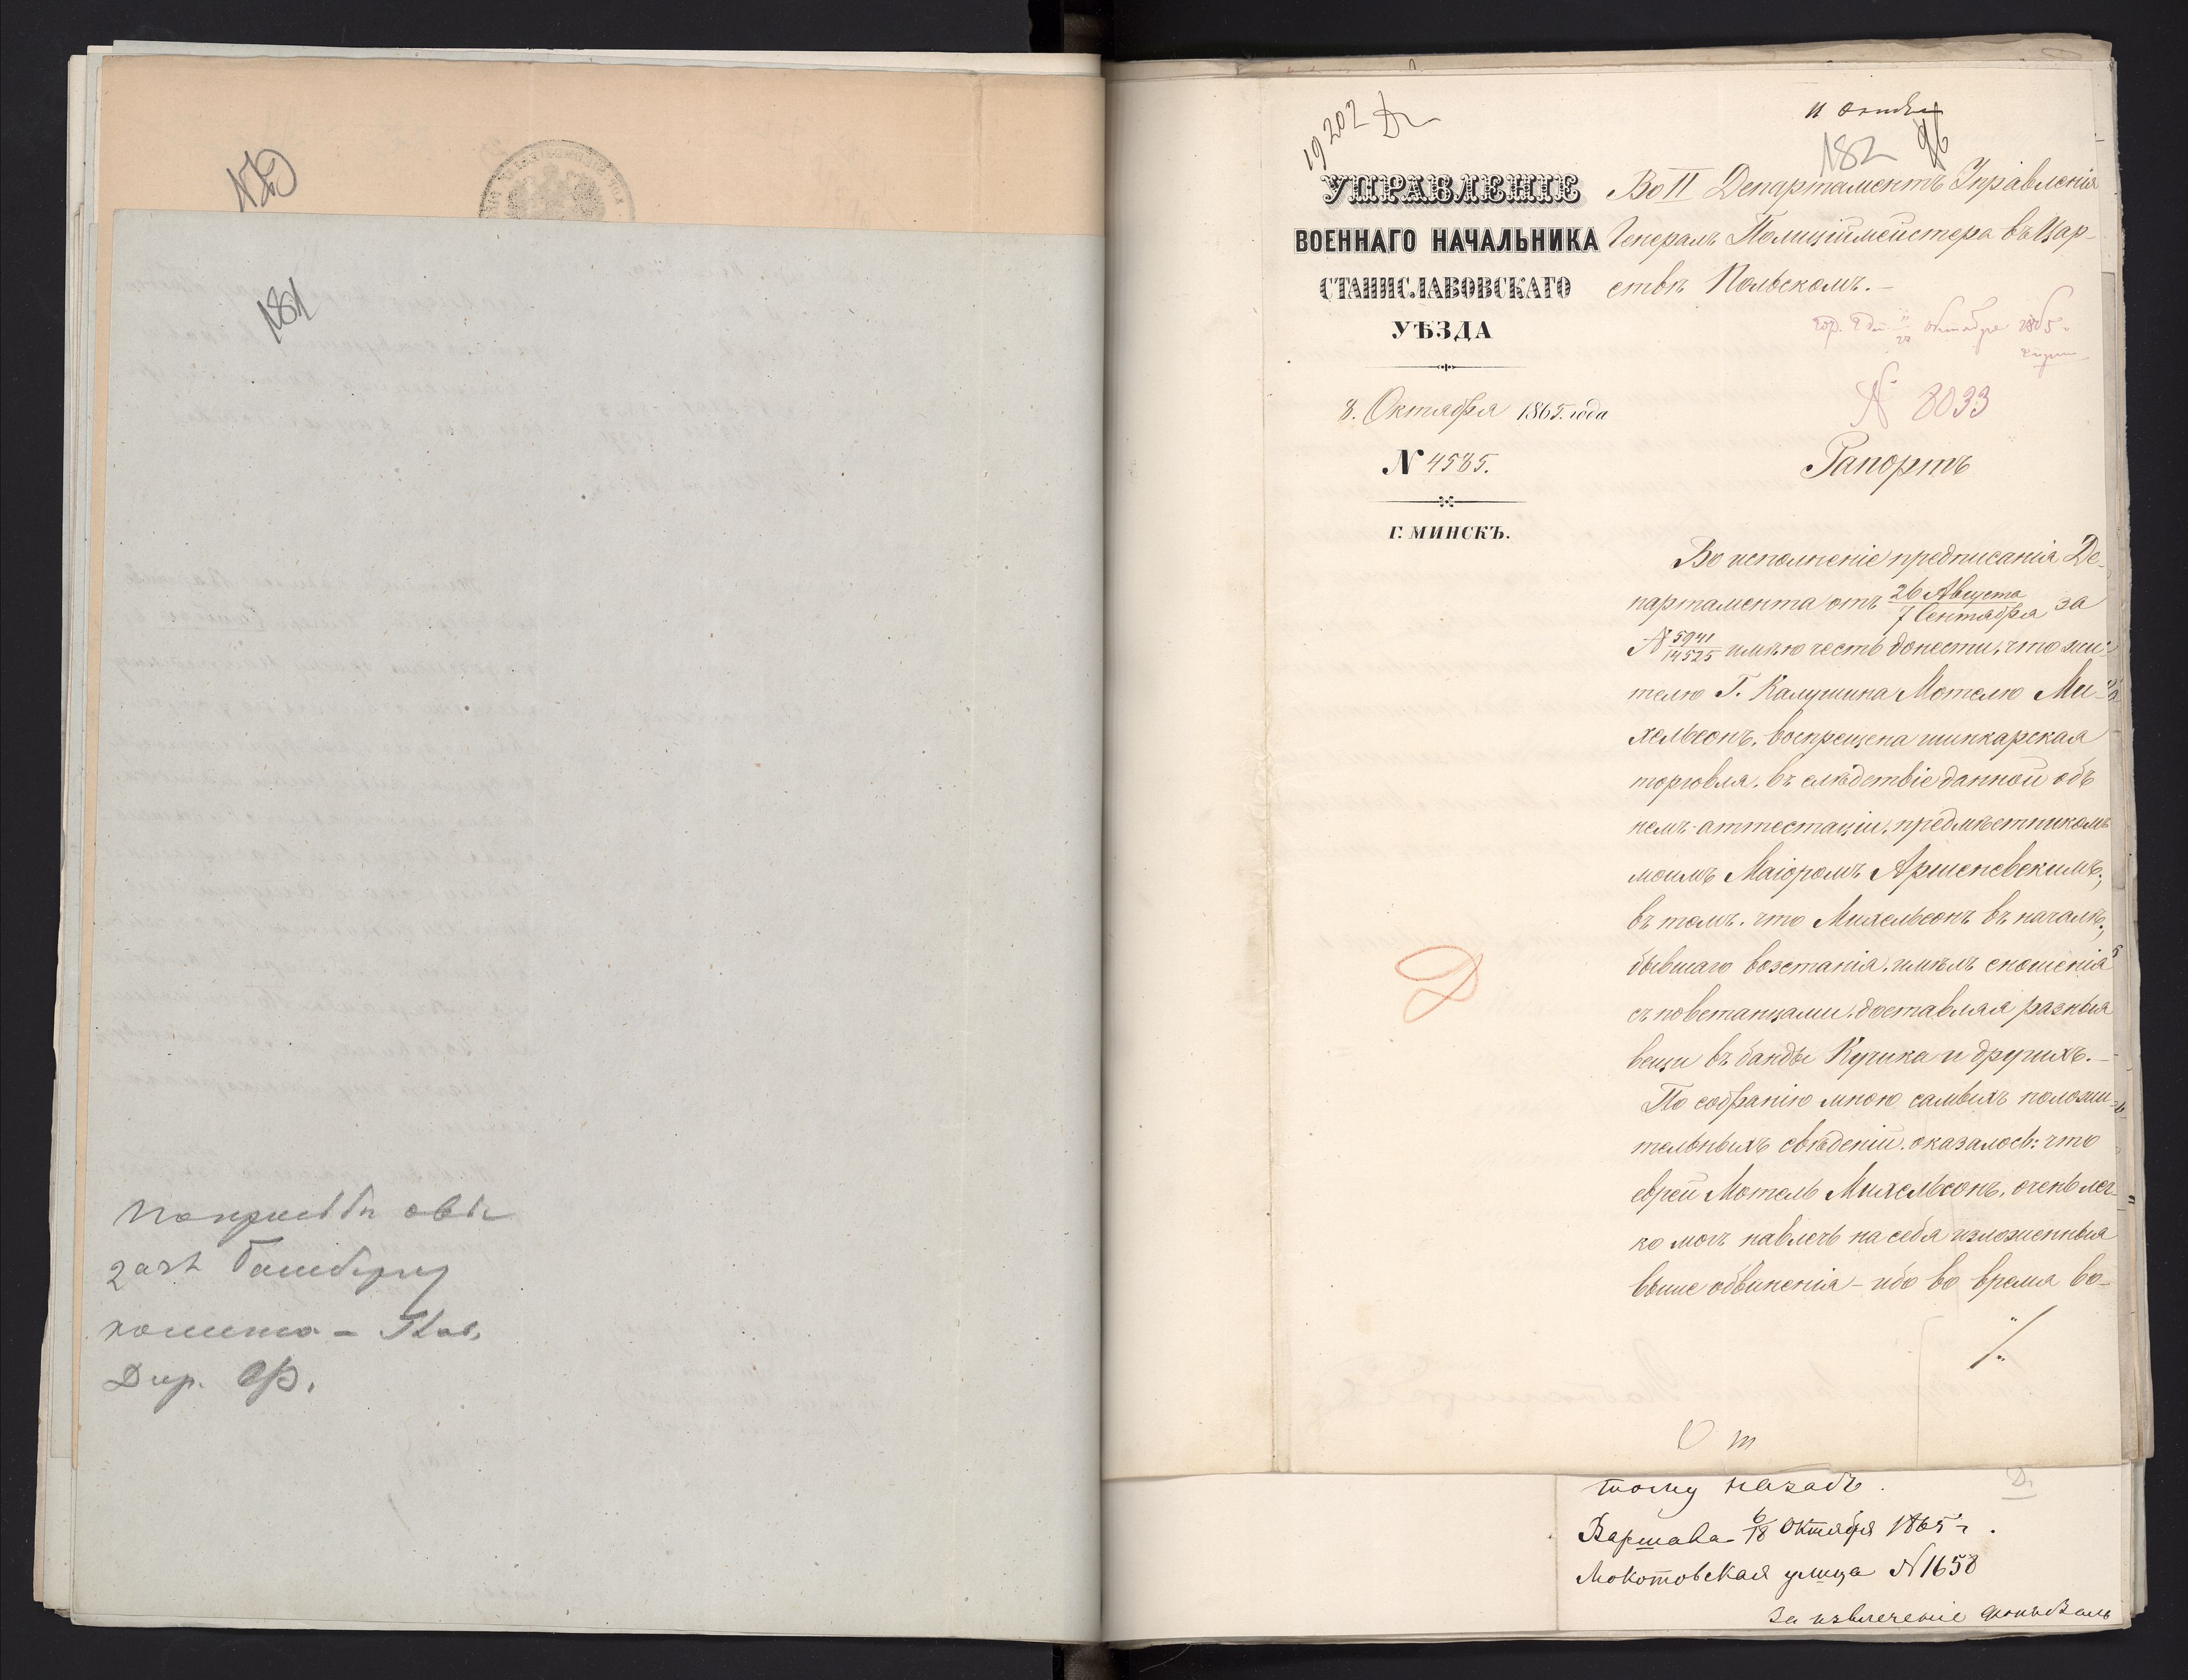 180
181
19202
182
96
УПРАВЛЕНІЕ
ВОЕННАГО НАЧАЛЬНИКА
СТАНИСЛАВОВСКАГО
УѢЗДА
8. Октября 1865. года
N 4585.
Г. МИНСКЪ.
Во II Департаментъ Управленія
Генералъ Полиціймейстера въ Цар-
ствѣ Польскомъ.-
октября 1865
N 8033
Рапортъ
Во исполненіе предписанія Де-
партамента отъ 26 Августа / 7 Сентября за
N 5941/14525 имѣю честь донести, что жи-
телю Г. Калушина Мотелю Ми-
хельсонъ, воспрещена шинкарская
торговля, въ слѣдствіе данной объ
немъ аттестаціи, предмѣстникомъ
моимъ Маіоромъ Аршеневскимъ,
въ томъ, что Михельсонъ въ началѣ
бывшаго возстанія, имѣлъ сношенія
съ повстанцами, доставляя разныя
вещи въ банды Кучика и другихъ.-
По собранію мною самыхъ положи-
тельныхъ свѣденій, оказалось: что
еврей Мотель Михельсонъ, очень лег-
ко могъ навлечь на себя изложенныя
выше обвиненія - ибо во время во-
тому назадъ.
Варшава 6/18 Октября 1865 г.
Мокотовская улица N 1658
За извлеченіе
Дир.